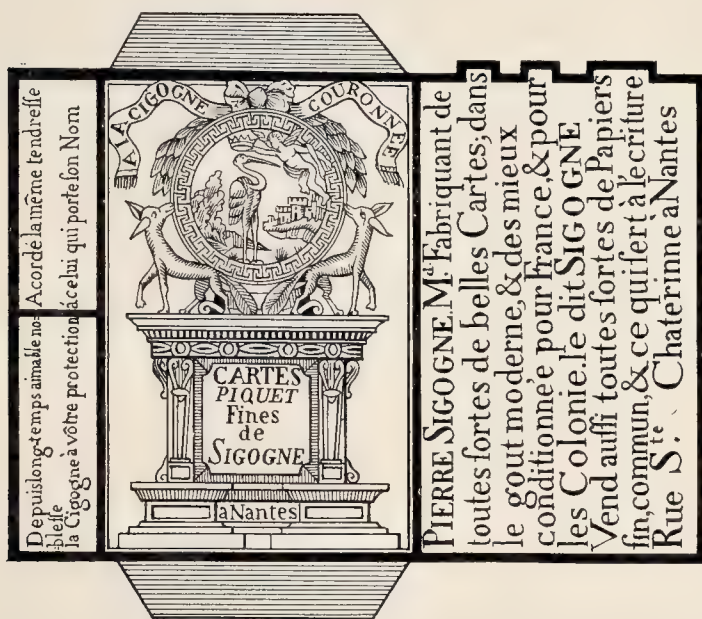 Depuis long-temps aimable no=
=bleſſe
la Cigogne à vôtre protection
Acordé la même tendreſſe
á celui qui porte ſon Nom
A LA CIGOGNE COURONNEE
CARTES
PIQUET
Fines
de
SIGOGNE
a Nantes
PIERRE SIGOGNE, M.d Fabriquant de
toutes ſortes de belles Cartes; dans
le gout moderne, & des mieux
conditionnée pour France, & pour
les Colonie. le dit SIGOGNE
Vend auſſi toutes ſortes de Papiers
fin, commun, & ce qui ſert à l'ecriture
Rue S.te Chaterinne à Nantes